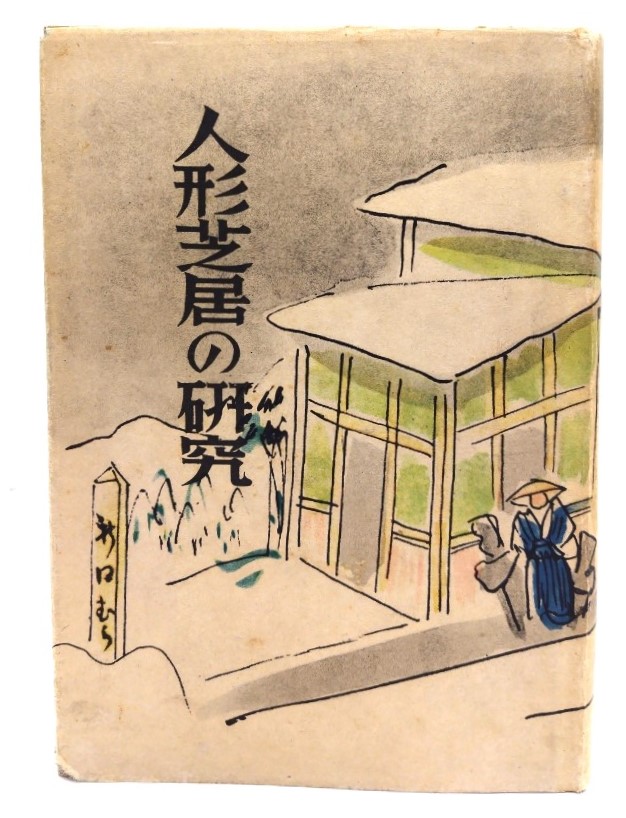 人形芝居の研究
新口むら